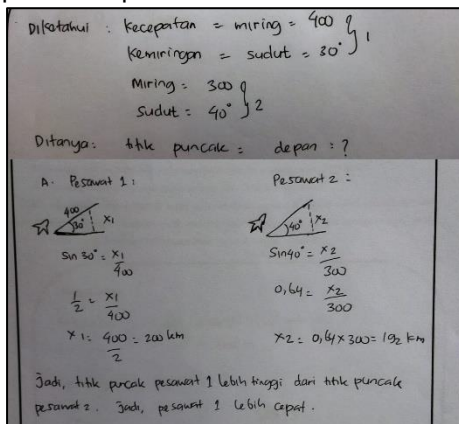 Diketahui : Kecepatan = miring = 400 } 1
Kemiringan = sudut = 30°
Miring = 300 } 2
Sudut = 40°
Ditanya : titik puncak = depan = ?
A. Pesawat 1 : Pesawat 2 :
400 30° x1 40° x2
Sin 30° = x1/400 Sin 40° = x2/300
1/2 = x1/400 0,64 = x2/300
x1 = 400/2 = 200 km x2 = 0,64 x 300 = 192 km
Jadi, titik puncak pesawat 1 lebih tinggi dari titik puncak
pesawat 2. Jadi, pesawat 1 lebih cepat.